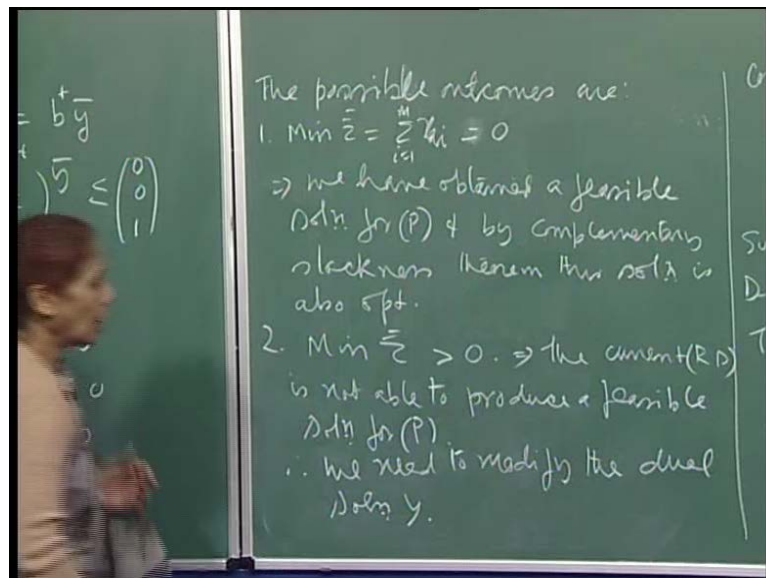 = b^t ȳ
)^t ȳ ≤ (0 0 1)
0
The possible outcomes are:
1. Min ξ̄ = Σ_{i=1}^{m} x_{ai} = 0
⇒ we have obtained a feasible
soln. for (P) & by complementary
slackness theorem this soln is
also opt.
2. Min ξ̄ > 0. ⇒ the current (RD)
is not able to produce a feasible
soln for (P).
∴ we need to modify the dual
soln y.
Co
Su
D
T